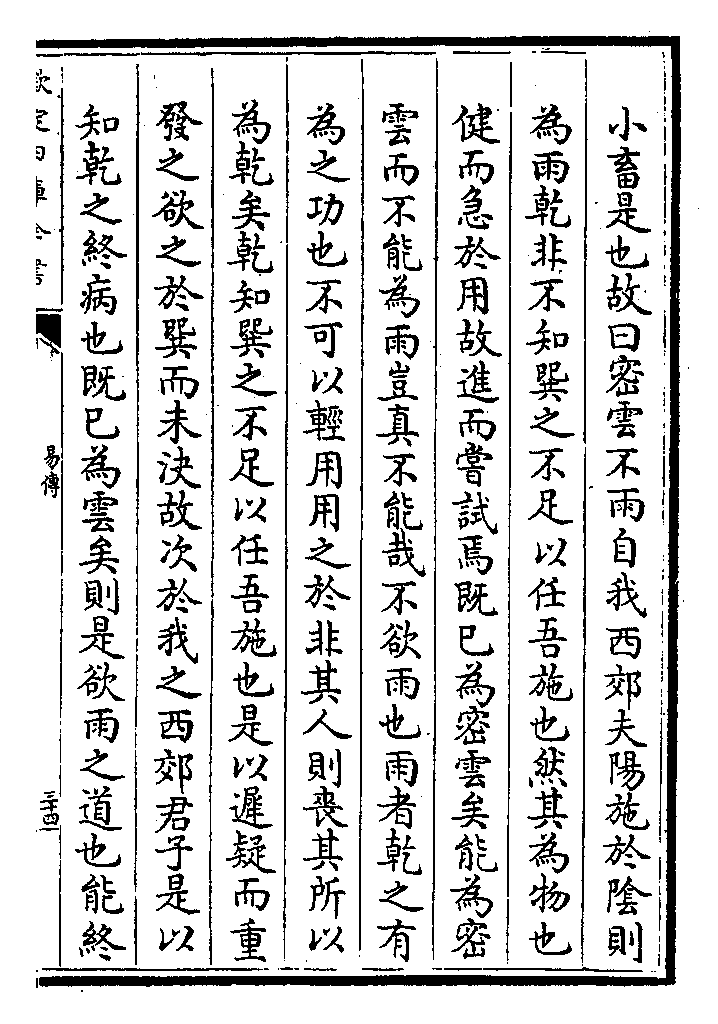 小畜是也故曰密雲不雨自我西郊夫陽施於陰則
為雨乾非不知巽之不足以任吾施也然其為物也
健而急於用故進而嘗試焉既已為密雲矣能為密
雲而不能為雨豈真不能哉不欲雨也雨者乾之有
為之功也不可以輕用用之於非其人則喪其所以
為乾矣乾知巽之不足以任吾施也是以遲疑而重
發之欲之於巽而未決故次於我之西郊君子是以
知乾之終病也既已為雲矣則是欲雨之道也能終
易傳
三十四